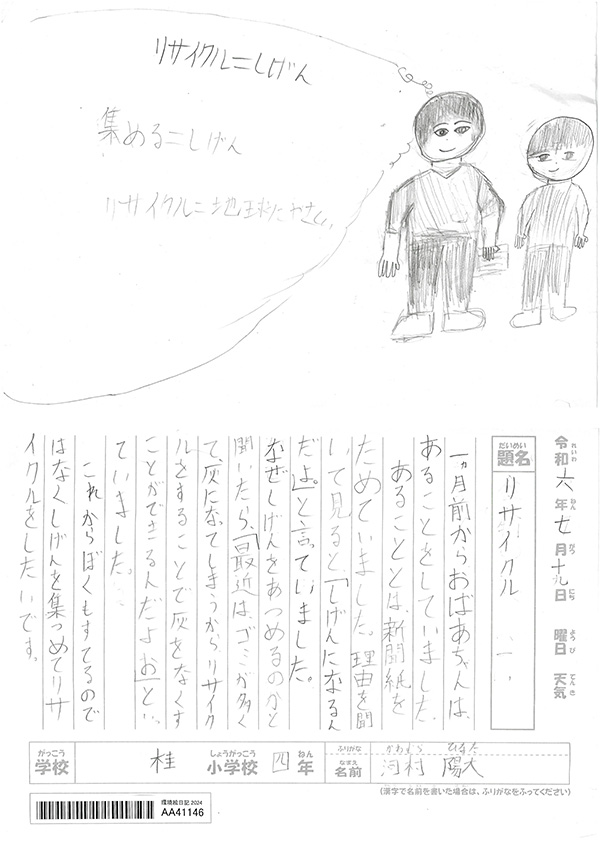 リサイクル=しげん
集める=しげん
リサイクル=地球にやさしい
令和六年七月十九日 曜日 天気
れいわ ねん がつ にち ようび てんき
だいめい
題名
リサイクル
一ヵ月前からおばあちゃんは、
あることをしていました。
あることとは、新聞紙を
ためていました。理由を聞
いて見ると、「しげんになるん
だよ。」と言っていました。
なぜしげんをあつめるのかと
聞いたら、「最近は、ゴミが多く
て、灰になってしまうからリサイク
ルをすることで灰をなくす
ことができるんだよ
ていました。
これからぼくもすてるので
はなくしげんを集つめてリサ
イクルをしたいです。
がっこう
学校
桂
しょうがっこう
小学校
四
ねん
年
ふりがな
なまえ
名前
かわむら
河村 陽大
(漢字で名前を書いた場合は、ふりがなをふってください)
環境絵日記 2024
AA41146